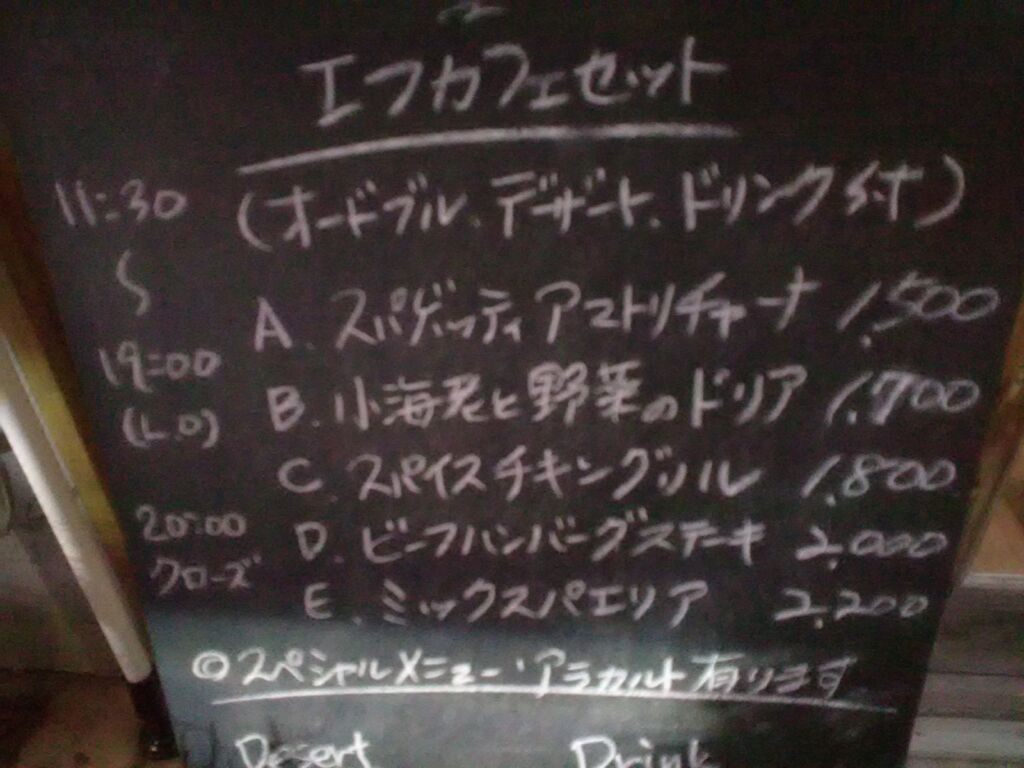 エフカフェセット
(オードブル、デザート、ドリンク付)
11:30
〜
19:00
(L.O)
20:00
クローズ
A. スパゲッティアマトリチャーナ 1,500
B. 小海老と野菜のドリア 1,700
C. スパイスチキングリル 1,800
D. ビーフハンバーグステーキ 2,000
E. ミックスパエリア 2,200
◎スペシャルメニュー・アラカルト有ります
Desert Drink